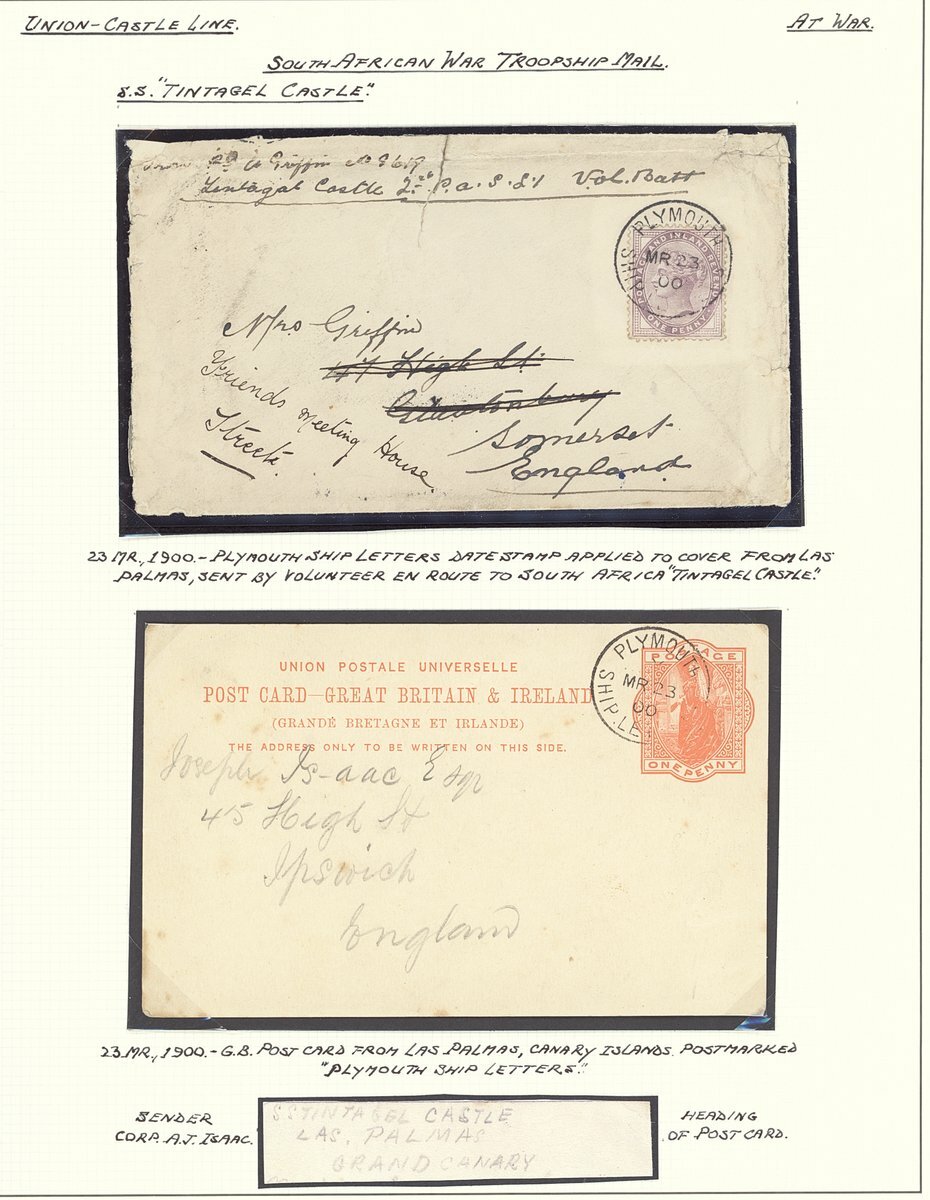 UNION-CASTLE LINE.
AT WAR.
SOUTH AFRICAN WAR TROOPSHIP MAIL.
S.S. "TINTAGEL CASTLE".
Griffin No 9619
Tintagal Castle 2nd P.a.S.L.I Vol. Batt
PLYMOUTH SHIP
MR 23
00
POSTAGE AND INLAND REVENUE
ONE PENNY
Mrs Griffin
47 High St.
Glastonbury
Friends Meeting House
Street.
Somerset
England
23 MR., 1900.- PLYMOUTH SHIP LETTERS DATESTAMP APPLIED TO COVER FROM LAS
PALMAS, SENT BY VOLUNTEER EN ROUTE TO SOUTH AFRICA "TINTAGEL CASTLE".
UNION POSTALE UNIVERSELLE
POST CARD—GREAT BRITAIN & IRELAND
(GRANDE BRETAGNE ET IRLANDE)
THE ADDRESS ONLY TO BE WRITTEN ON THIS SIDE.
PLYMOUTH SHIP. LE
MR 23
00
POSTAGE
ONE PENNY
Joseph Isaac Esqr
45 High St
Ipswich
England
23 MR., 1900.- G.B. POST CARD FROM LAS PALMAS, CANARY ISLANDS. POSTMARKED
"PLYMOUTH SHIP LETTERS".
SENDER
CORP. A.J. ISAAC.
SS TINTAGEL CASTLE
LAS. PALMAS
GRAND CANARY
HEADING
OF POST CARD.